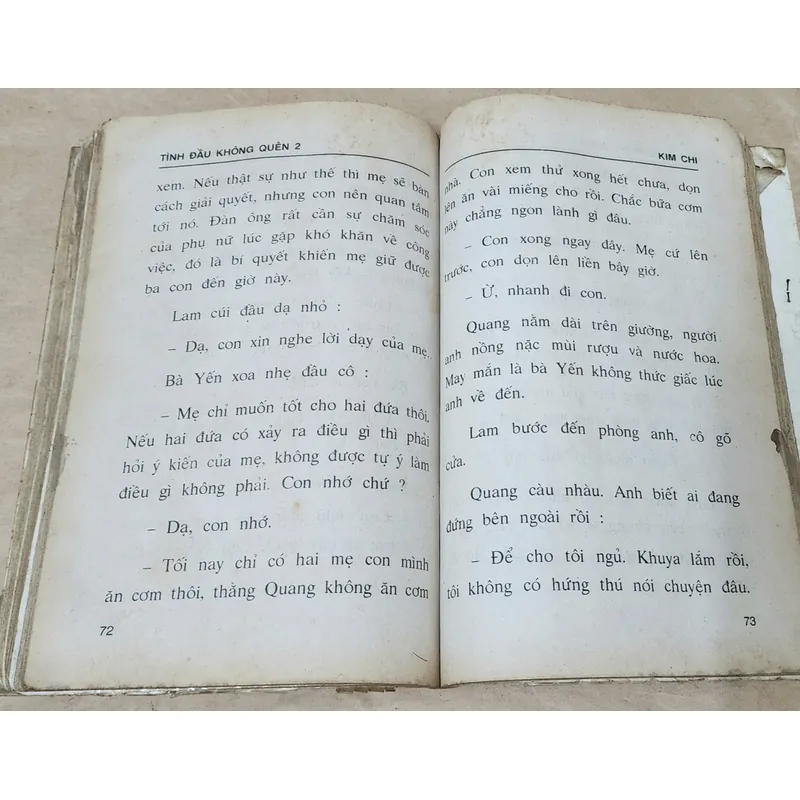 TÌNH ĐẦU KHÔNG QUÊN 2
xem. Nếu thật sự như thế thì mẹ sẽ bàn
cách giải quyết, nhưng con nên quan tâm
tới nó. Đàn ông rất cần sự chăm sóc
của phụ nữ lúc gặp khó khăn về công
việc, đó là bí quyết khiến mẹ giữ được
ba con đến giờ này.
Lam cúi đầu dạ nhỏ :
– Dạ, con xin nghe lời dạy của mẹ.
Bà Yến xoa nhẹ đầu cô :
– Mẹ chỉ muốn tốt cho hai đứa thôi.
Nếu hai đứa có xảy ra điều gì thì phải
hỏi ý kiến của mẹ, không được tự ý làm
điều gì không phải. Con nhớ chứ ?
– Dạ, con nhớ.
– Tối nay chỉ có hai mẹ con mình
ăn cơm thôi, thằng Quang không ăn cơm
72
KIM CHI
nhà. Con xem thử xong hết chưa, dọn
lên ăn vài miếng cho rồi. Chắc bữa cơm
này chẳng ngon lành gì đâu.
– Con xong ngay đây. Mẹ cứ lên
trước, con dọn lên liền bây giờ.
– Ừ, nhanh đi con.
Quang nằm dài trên giường, người
anh nồng nặc mùi rượu và nước hoa.
May mắn là bà Yến không thức giấc lúc
anh về đến.
Lam bước đến phòng anh, cô gõ
cửa.
Quang càu nhàu. Anh biết ai đang
đứng bên ngoài rồi :
– Để cho tôi ngủ. Khuya lắm rồi,
tôi không có hứng thú nói chuyện đâu.
73